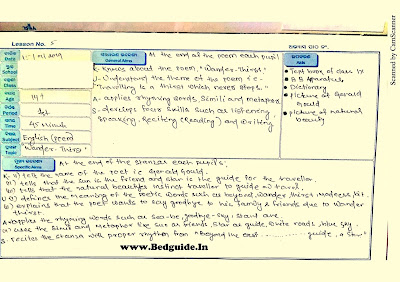 Lesson No. 5
Date
School
Class
Age 14+
Period 1st
Time 45 minute
Subject English (poem)
Topic "Wander-Thirst"
General Aims
At the end of the poem each pupil
K- Knows about the poem, "Wander-Thirst"
U- Understand the theme of the poem i.e-
"Travelling is a thirst which never stops."
A- applies rhyming words, Simili and metaphor
S- develops four skills such as listening,
Speaking, Reciting (Reading) and Writing.
Text book of class IX
B.B Apparatus
Dictionary
Picture of Gerald
Gould
Picture of natural
beauty
Specific Aims
At the end of the stanzas each pupils,
K- i) tell the name of the Poet i.e Gerald Gould.
ii) tells that the sun is the friend and star is the guide for the traveller.
iii) tells that the natural beauties instinct traveller to guide a travel.
U- i) defines the meaning of the poetic words such as beyond, Wander thirst, Madness, bit
ii) explains that the poet wants to say goodbye to his family & friends due to Wander
thirst.
A- applies the rhyming words such as Sea-be, goodbye-Sky, star are.
uses the Simili and Metaphor like Sun as friends, star as guide, White roads, blue sky.
S. recites the stanza with proper rhythm from "Beyond the East ........... guide, a Star"
www.Bedguide.In
Scanned by CamScanner